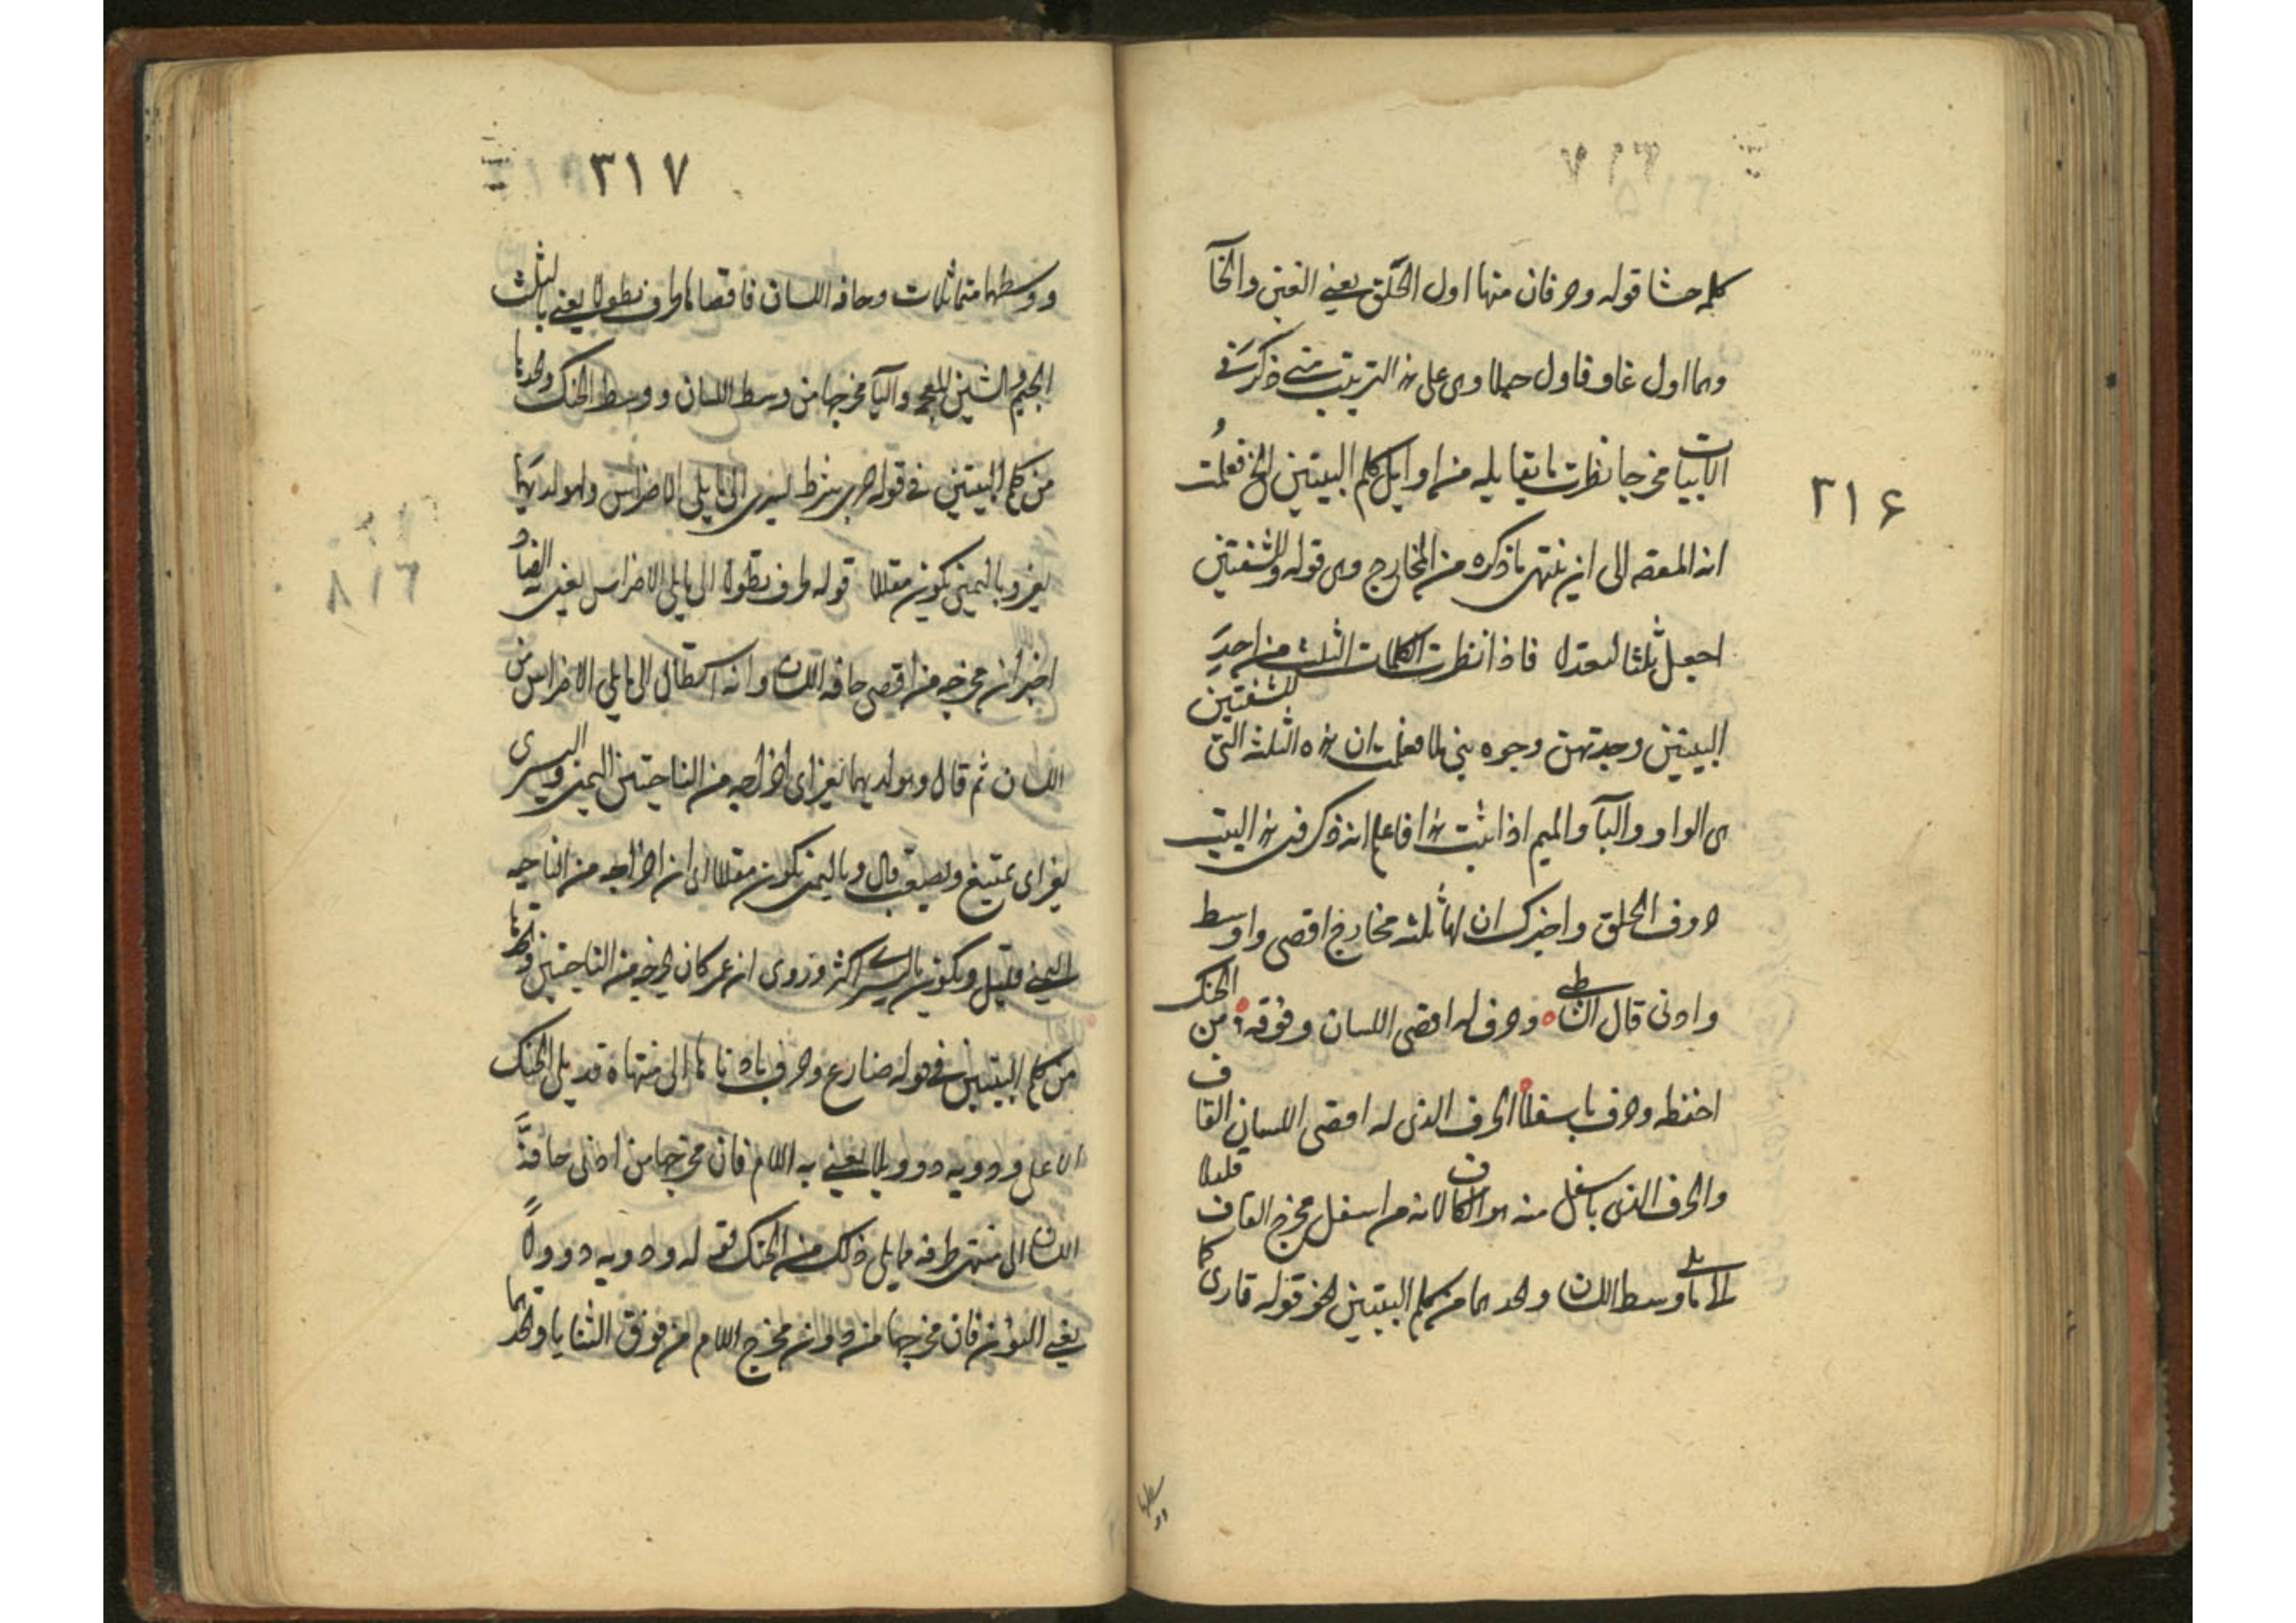 ٣١۶
كلمه حشا قوله وحرفان منها اول الحلق يعنى الغين والخآ
وهما اول غاو فاول حملا وهى على هذا الترتيب متى ذكر فى
الابيات مخرجا نظرت ما يقابله من اوايل كلم البيتين الخ فعلمت
انه المقصد الى ان ينتهى ما ذكره من المخارج وهى قوله وللشفتين
اجعل ثلثا لتعدلا فاذا نظرت الكلمات الثلث من احد
البيتين وجدتهن وجوه بنى ملا فعلمت ان هذه الثلثه التى للشفتين
هى الواو والبآ والميم اذا ثبت هذا فاعلم انه ذكر فى هذا البيت
حروف الحلق واخبرك ان لها ثلثه مخارج اقصى واوسط
وادنى قال الناظم وحرف له اقصى اللسان وفوقه من الحنك
احفظه وحرف باسفلا الحرف الذى له اقصى اللسان القاف
والحرف الذى باسفل منه هو الكاف لانه من اسفل مخرج القاف قليلا
الى ما يلى وسط اللسان واخذهما من كلم البيتين الخ قوله قارى كما
وسطها
٣١٧
ووسطهما منه ثلاث وحافه اللسان فاقصاها لحرف تطولا يعنى بالثلث
الجيم والشين المعجمه واليآ مخرجها من وسط اللسان ووسط الحنك واخذها
من كلم البيتين فى قوله جرى شرط يسرى الى ما يلى الاضراس وهو لديهما
يعز وباليمنى يكون مقللا قوله لحرف تطولا الى ما يلى الاضراس يعنى الضاد
اخبر ان مخرجه من اقصى حافه اللسان وانه استطال الى ما يلى الاضراس من
اللسان ثم قال وهو لديهما يعز اى اخراجه من الناحيتين اليمنى واليسرى
يعز اى يمتنع ويصعب قال وباليمنى يكون مقللا اى ان اخراجه من الناحيه
اليمنى قليل ويكون باليسرى اكثر وروى ان عمر كان يخرجه من الناحيتين واخذها
من كلم البيتين فى قوله ضارع وحرف بادناها الى منتهاه قد يلى الحنك
الاعلى ودونه ذو ولا يعنى به اللام فان مخرجها من ادنى حافة
اللسان الى منتهى طرفه مما يلى ذلك من الحنك قوله ودونه ذو ولا
يعنى النون فان مخرجها من دون مخرج اللام من فوق الثنايا واخذهما